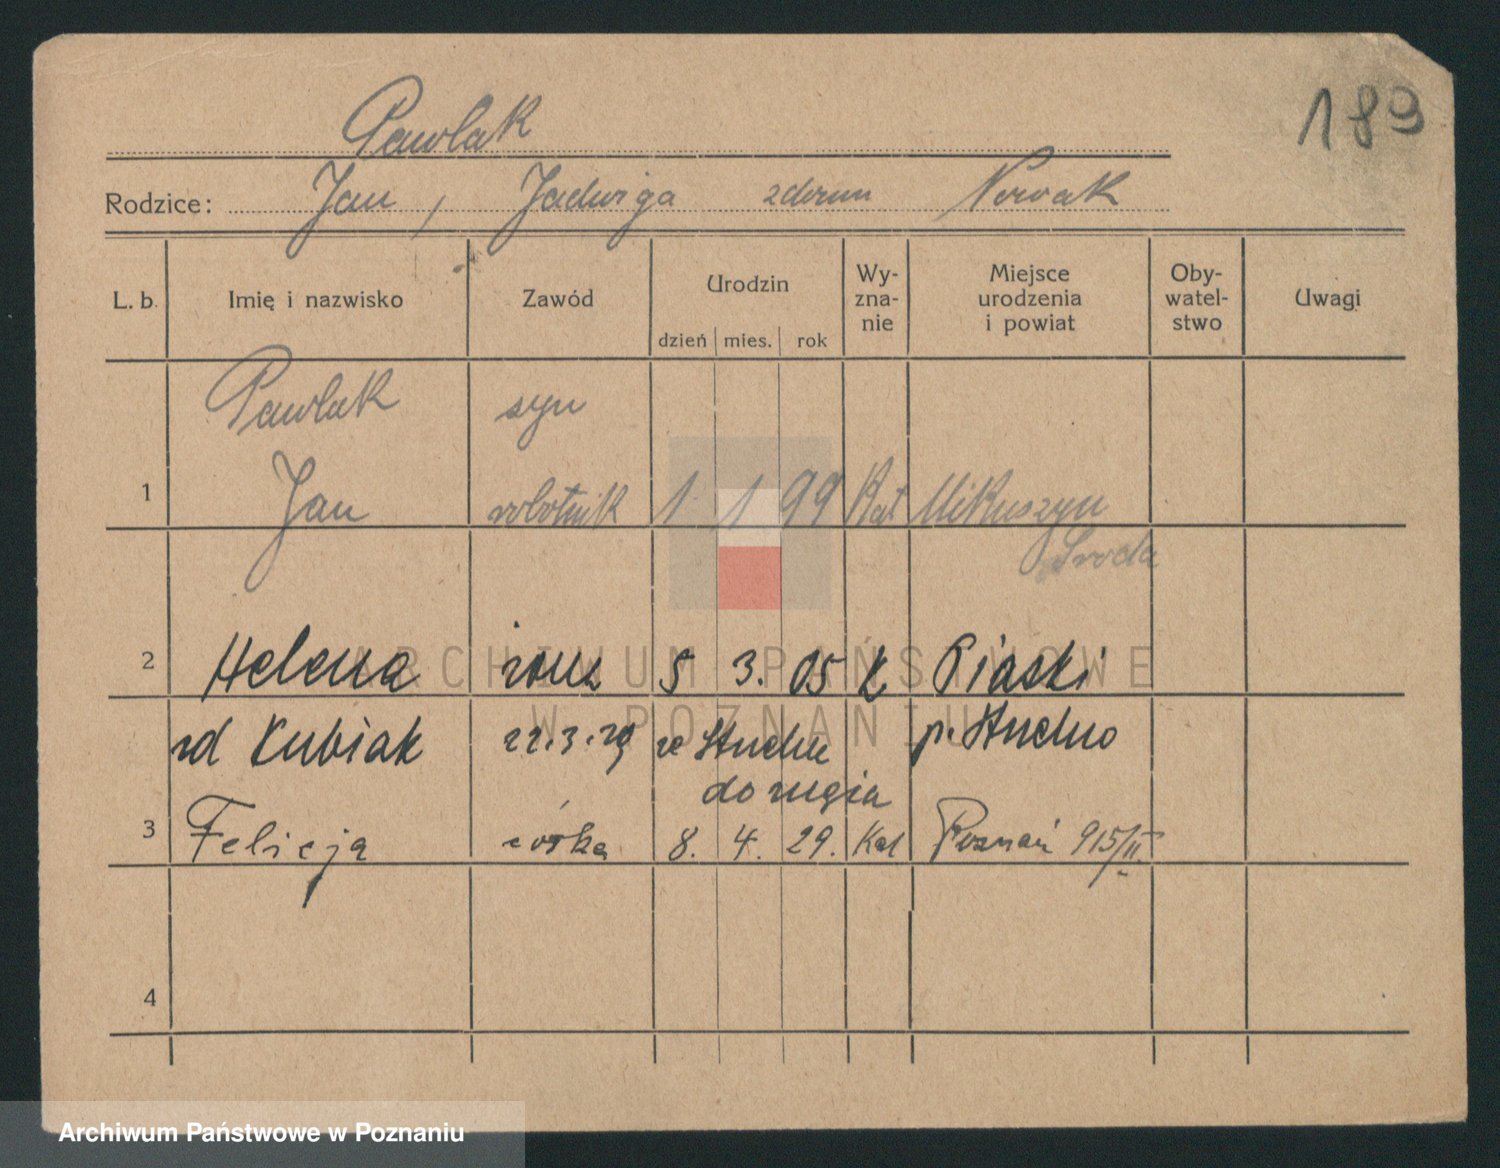 189
Pawlak
Rodzice: Jan, Jadwiga zdomu Nowak
L. b. Imię i nazwisko Zawód Urodzin dzień mies. rok Wy- zna- nie Miejsce urodzenia i powiat Oby- watel- stwo Uwagi
Pawlak syn
1 Jan robotnik 1 1 99 Kat Mikuszyn
Sroda
2 Helena żona 5 3. 05 k Piaski
ARCHIWUM PAŃSTWOWE
W POZNANIU
zd Kubiak 22.3.29 p.
3 Felicja córka 8. 4. 29. Kat Poznań 915/II.
4
Archiwum Państwowe w Poznaniu